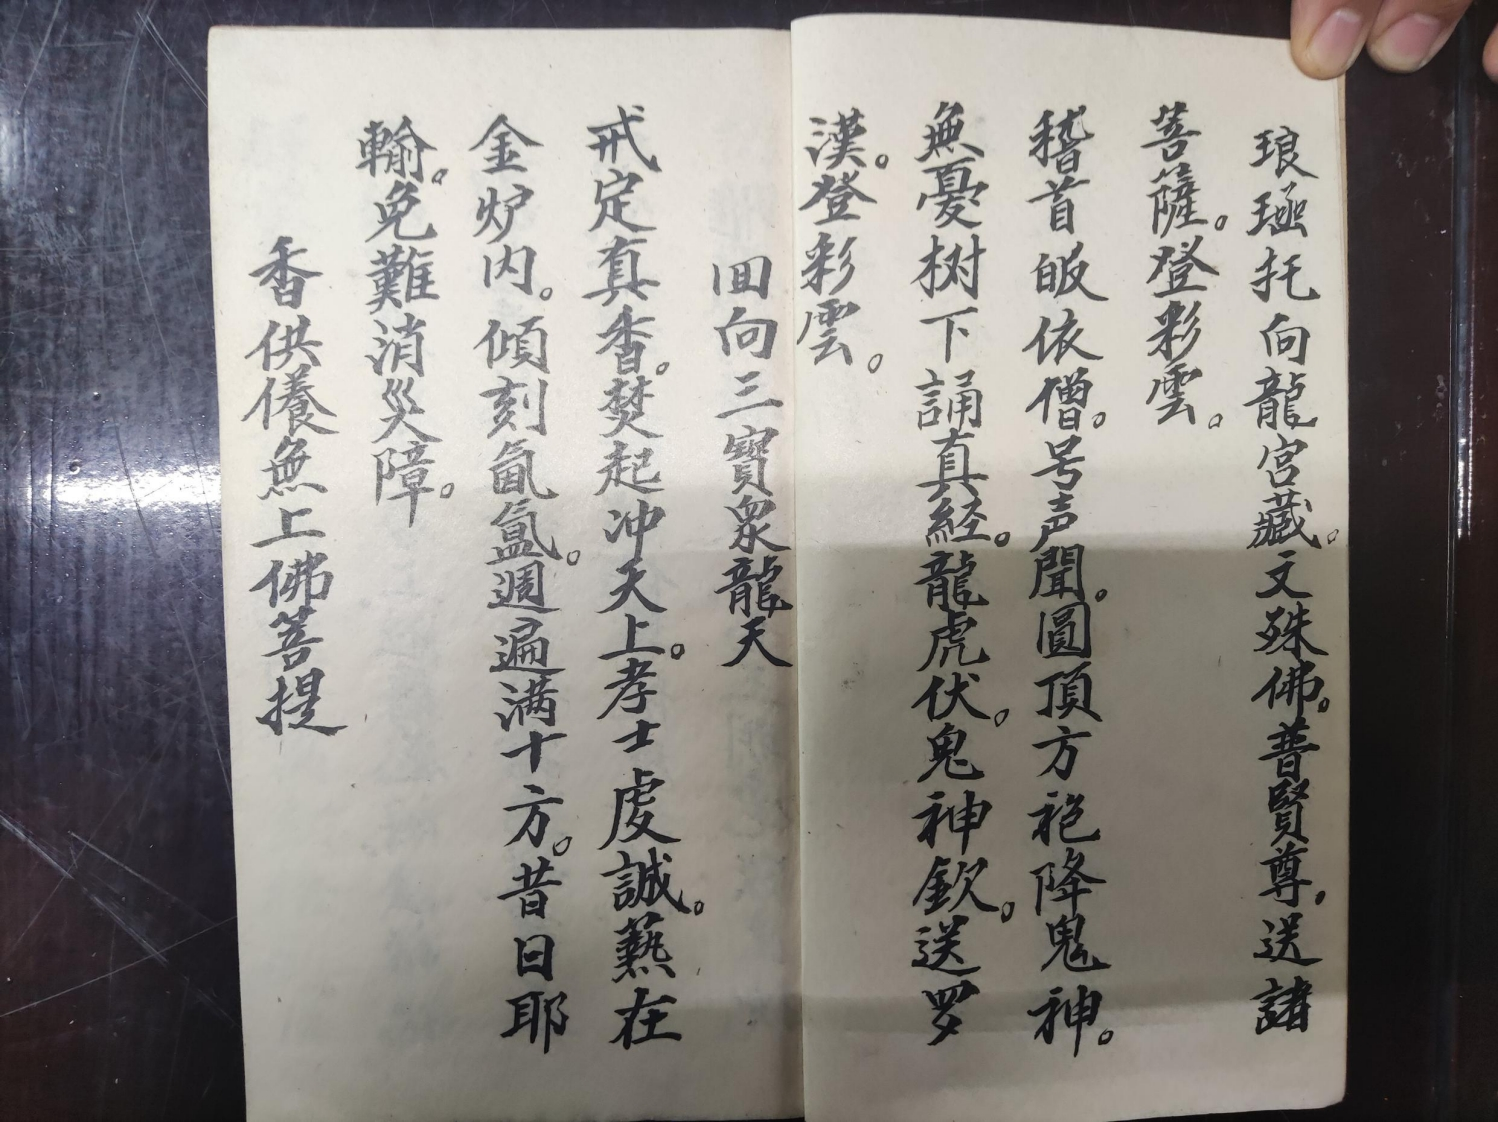 琅函托向龍宮藏。文殊佛。普賢尊。送諸
菩薩。登彩雲。
稽首皈依僧。号声聞。圓頂方袍降鬼神。
無憂树下誦真経。龍虎伏。鬼神欽。送罗
漢。登彩雲。
回向三寶衆龍天
戒定真香。焚起冲天上。孝士虔誠。爇在
金炉内。傾刻氤氲。週遍满十方。昔日耶
輸。免難消災障。
香供養無上佛菩提